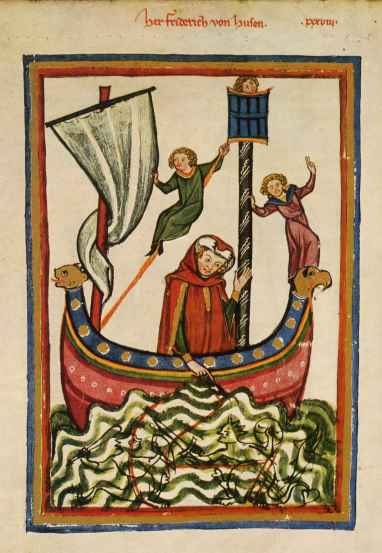 her friderich von husen. .xxxviii.